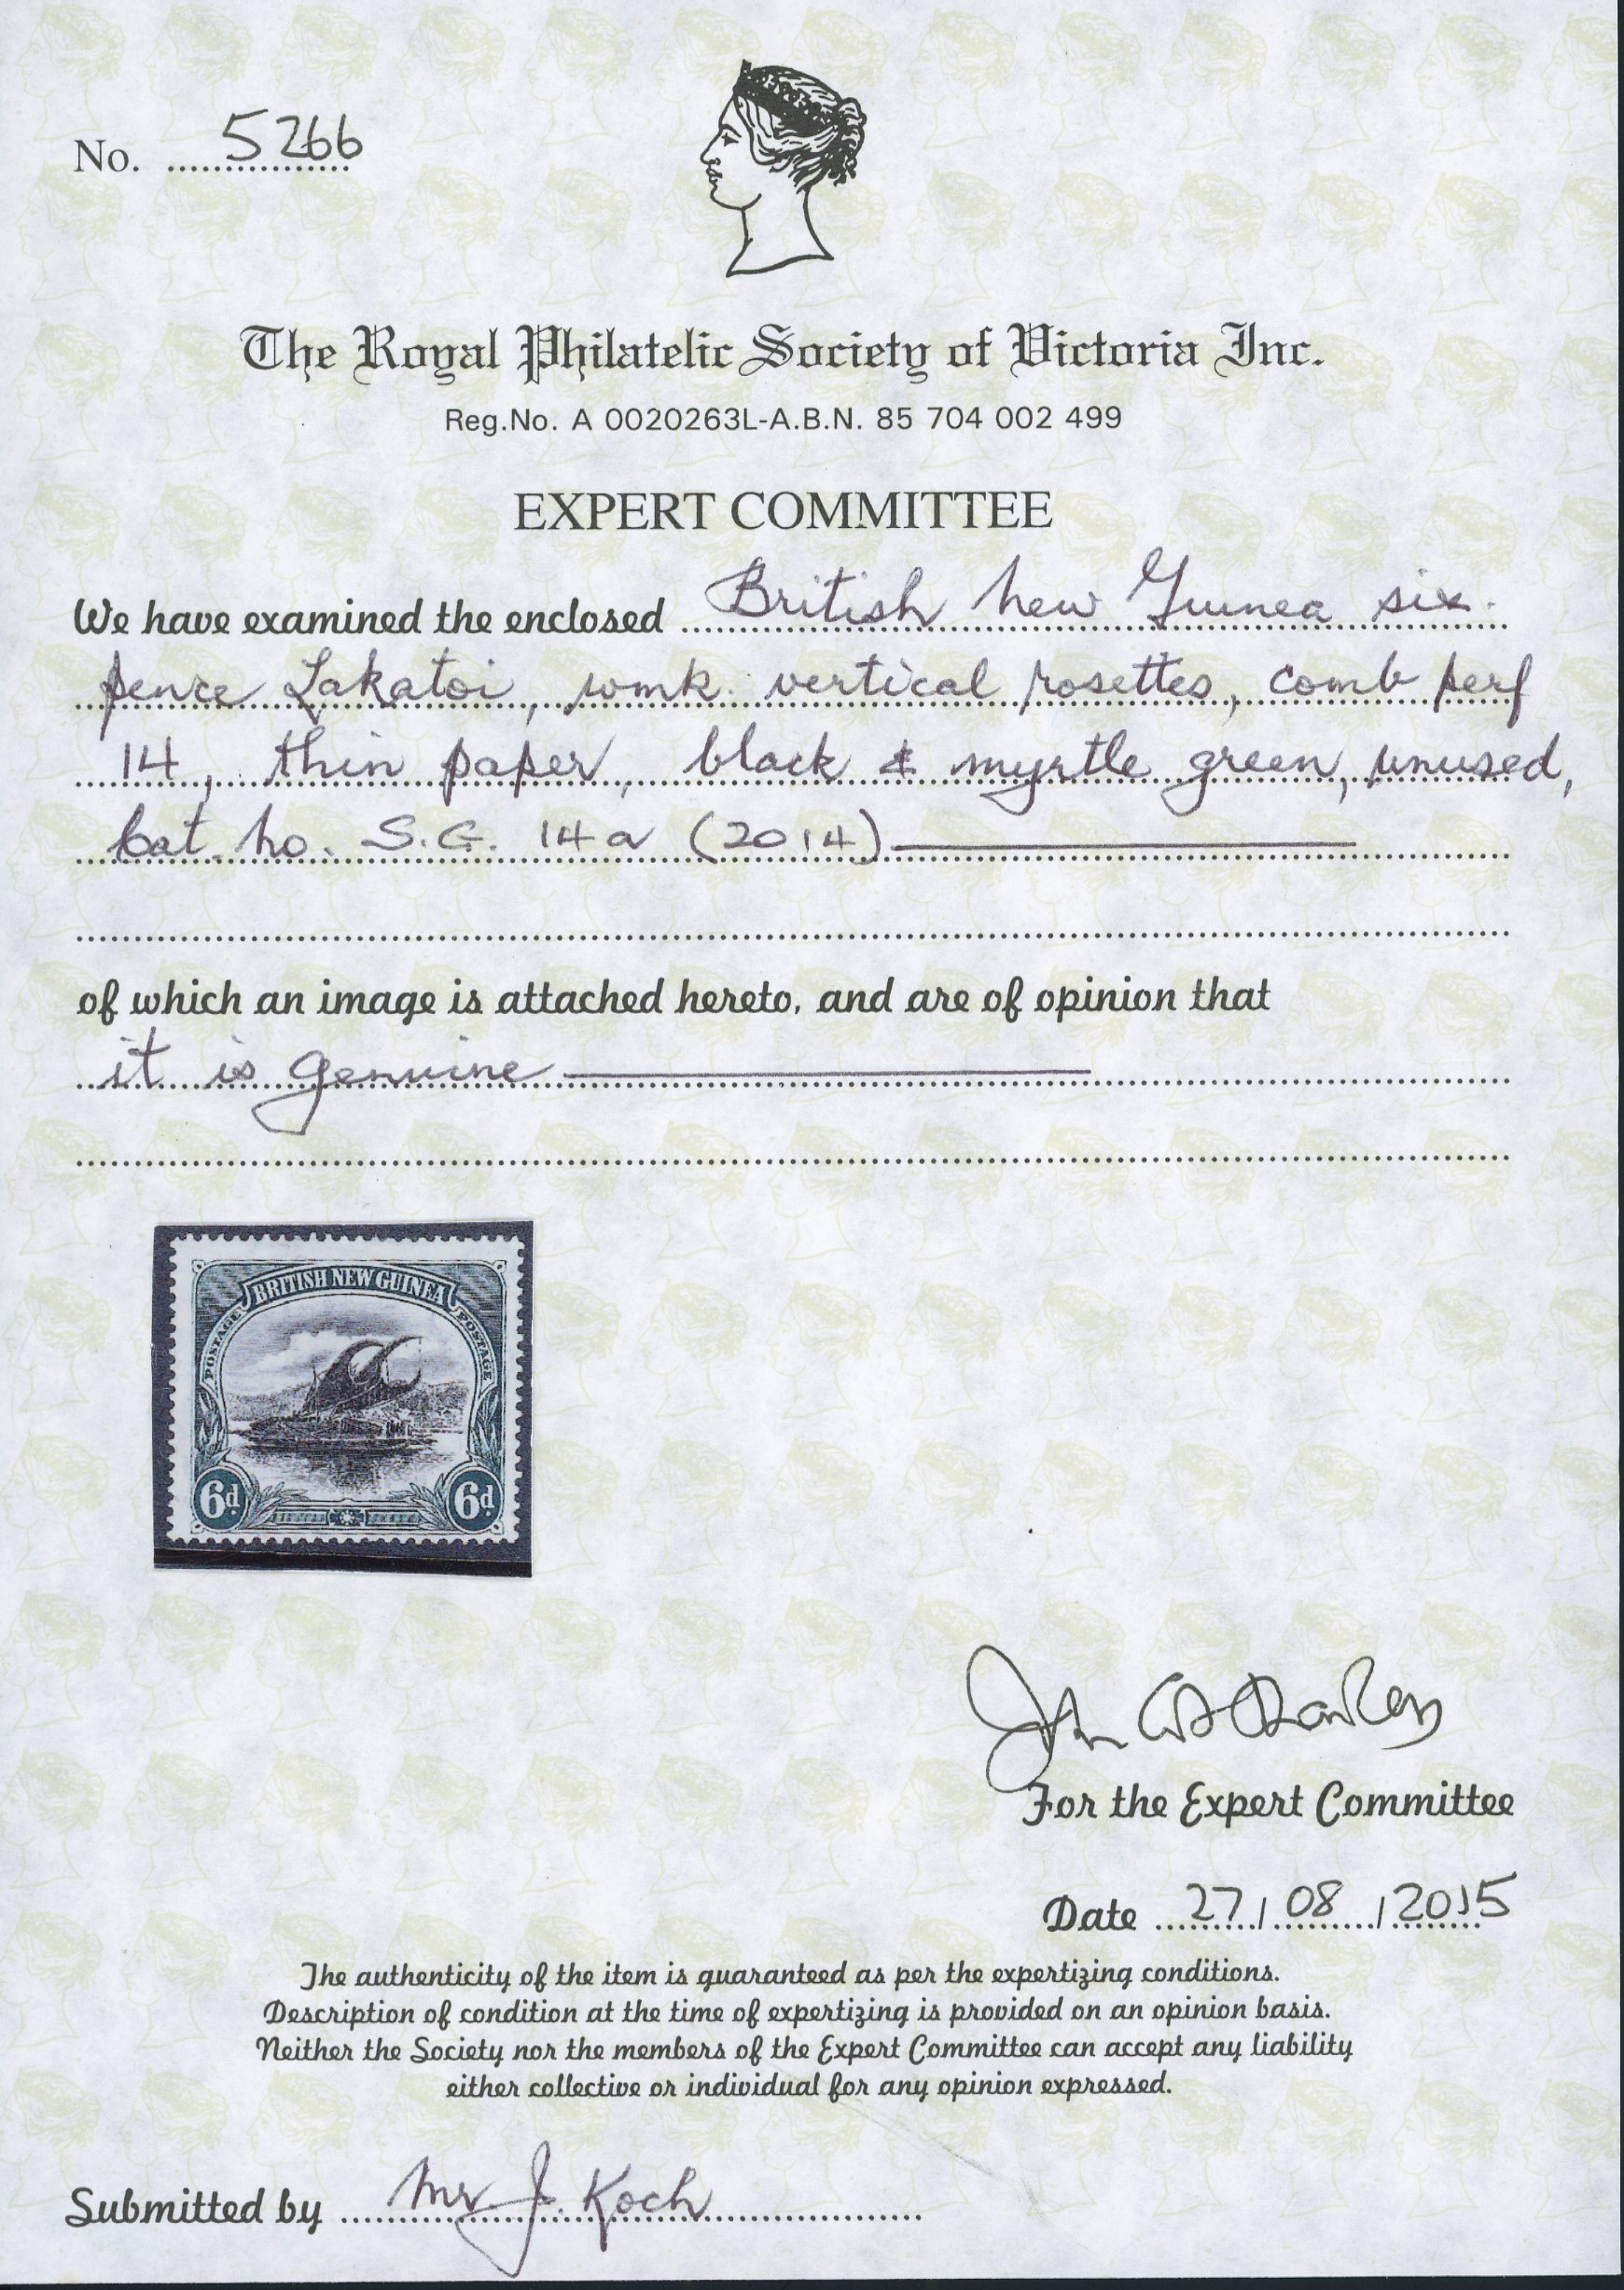 No. 5266
The Royal Philatelic Society of Victoria Inc.
Reg.No. A 0020263L-A.B.N. 85 704 002 499
EXPERT COMMITTEE
We have examined the enclosed British New Guinea six-
pence Lakatoi, wmk. vertical rosettes, comb perf
14, thin paper, black & myrtle green, unused,
Cat. No. S.G. 14a (2014)
of which an image is attached hereto, and are of opinion that
it is genuine
BRITISH NEW GUINEA
POSTAGE POSTAGE
6d. 6d.
For the Expert Committee
Date 27/08/2015
The authenticity of the item is guaranteed as per the expertizing conditions.
Description of condition at the time of expertizing is provided on an opinion basis.
Neither the Society nor the members of the Expert Committee can accept any liability
either collective or individual for any opinion expressed.
Submitted by Mr. J. Koch